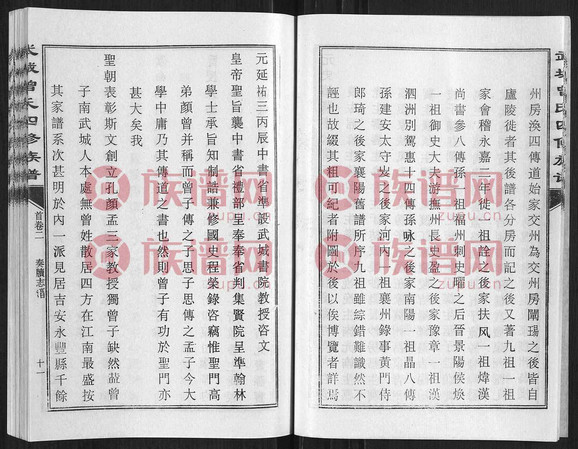 武城曾氏四修族譜
州房渙四傳道始家交州為交州房闡瑒之後皆自
廬陵徙者其後譜各分房而記之後又著九祖一祖
家會稽永嘉二年徙一祖詮之後家扶风一祖煒漢
尚書參八傳孫一祖杭州刺史曜之后晉景陽侯煥
一祖御史大夫游撫州長史盈之後家豫章一祖漢
泗洲別駕惠十四傳孫咏之後家南陽一祖晶八傳
孫建安太守炭之後家河內一祖襄州錄事黃門侍
郎琦之後家襄陽舊譜所序九祖雖綜錯難識然不
誣也故綴其祖可紀者附圖於後以俟博覽者詳焉
元史
元延祐三丙辰中書省準設武城書院教授咨文
皇帝聖旨襲中書省禮部呈奉奉省判集賢院呈準翰林
學士承旨知制誥兼修國史程榮錄咨竊惟聖門高
弟顏曾并稱而曾子傳之子思子思傳之孟子今大
學中庸乃其傳道之書也然則曾子有功於聖門亦
甚大矣我
聖朝表彰斯文創立孔顏孟三家教授獨曾子缺然葢曾
子南武城人本處無曾姓散居四方在江南最盛按
其家譜系次甚明於內一派見居吉安永豐縣千餘
武城曾氏四修族譜
首卷二
奏牘志譜
十一
族谱网
zupu.cn
族谱网
zupu.cn
族谱网
zupu.cn
族谱网
zupu.cn